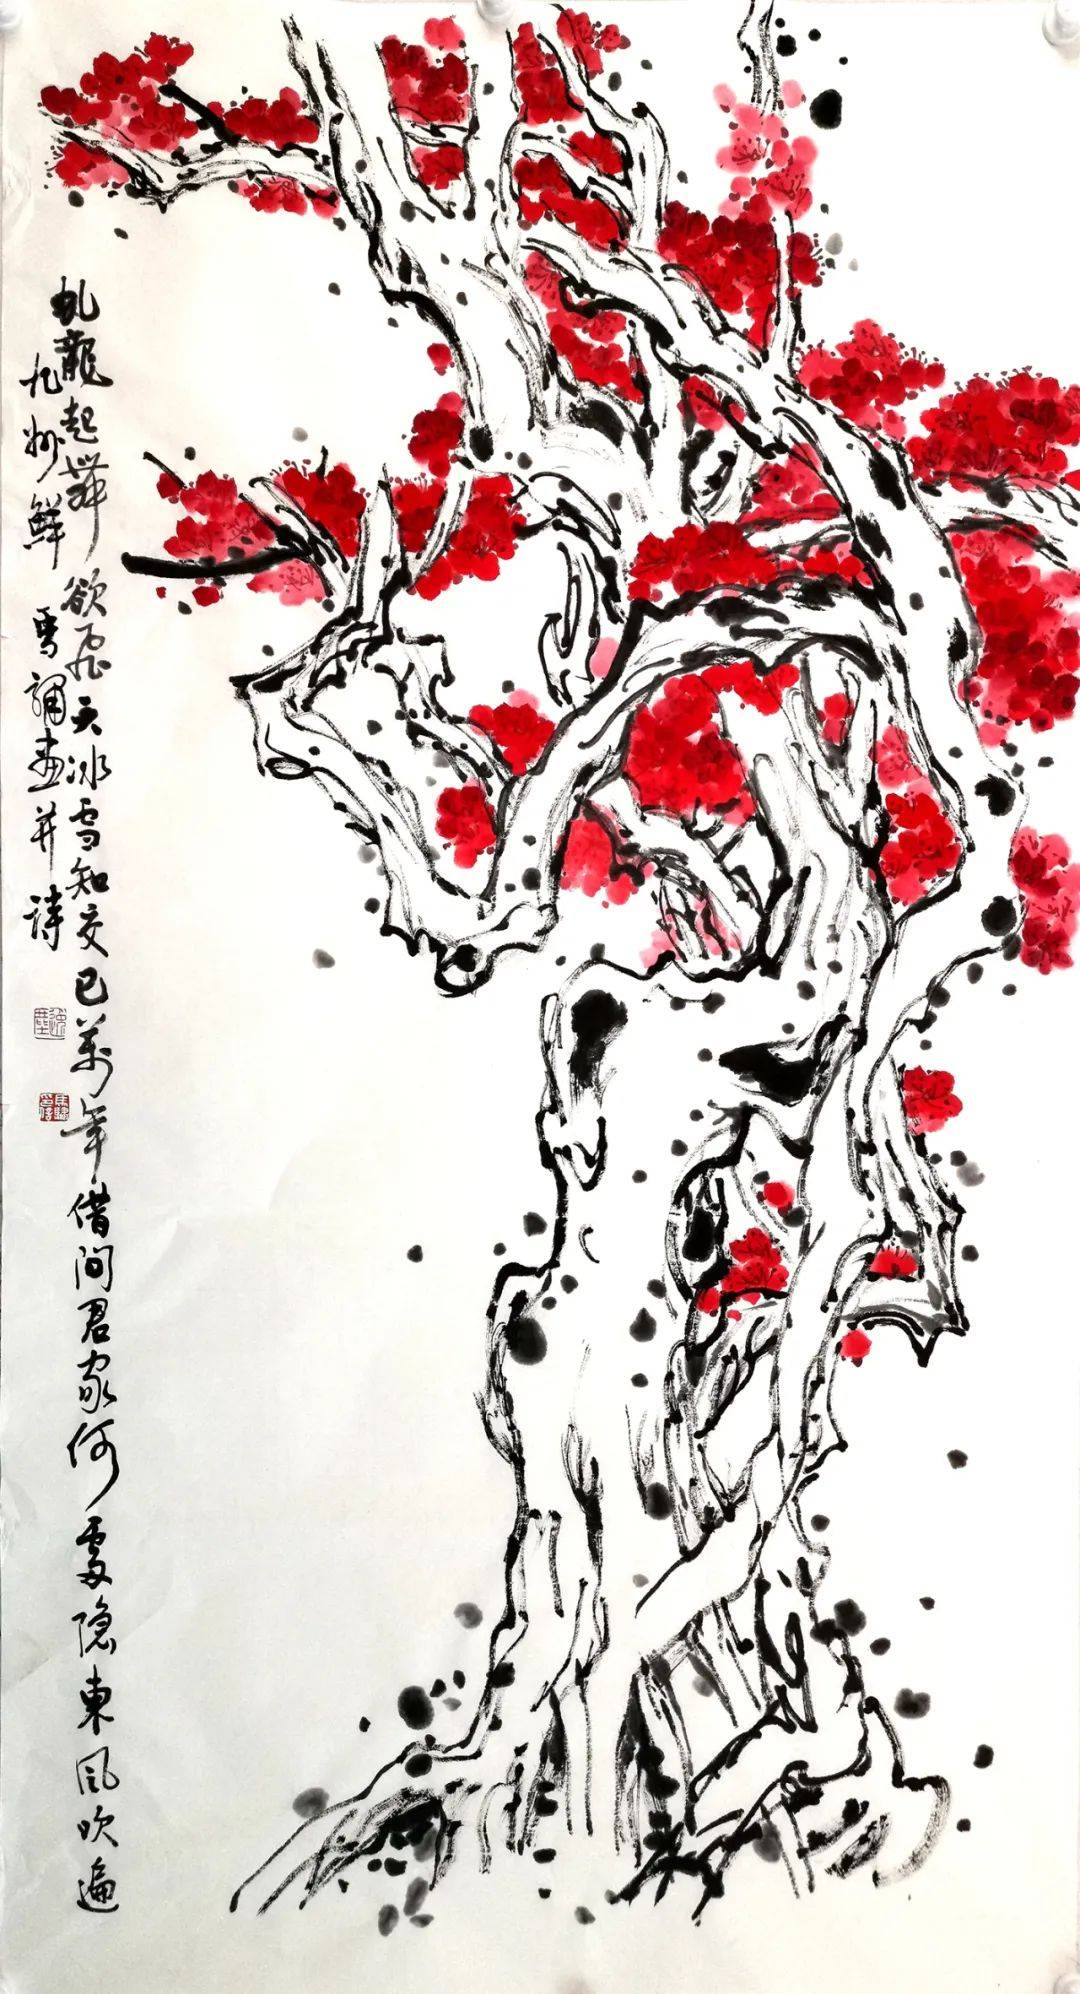 虬龍起舞欲飛天冰雪知交已萬年借问君家何處隐東風吹遍
九州鮮 雪誦畫并詩